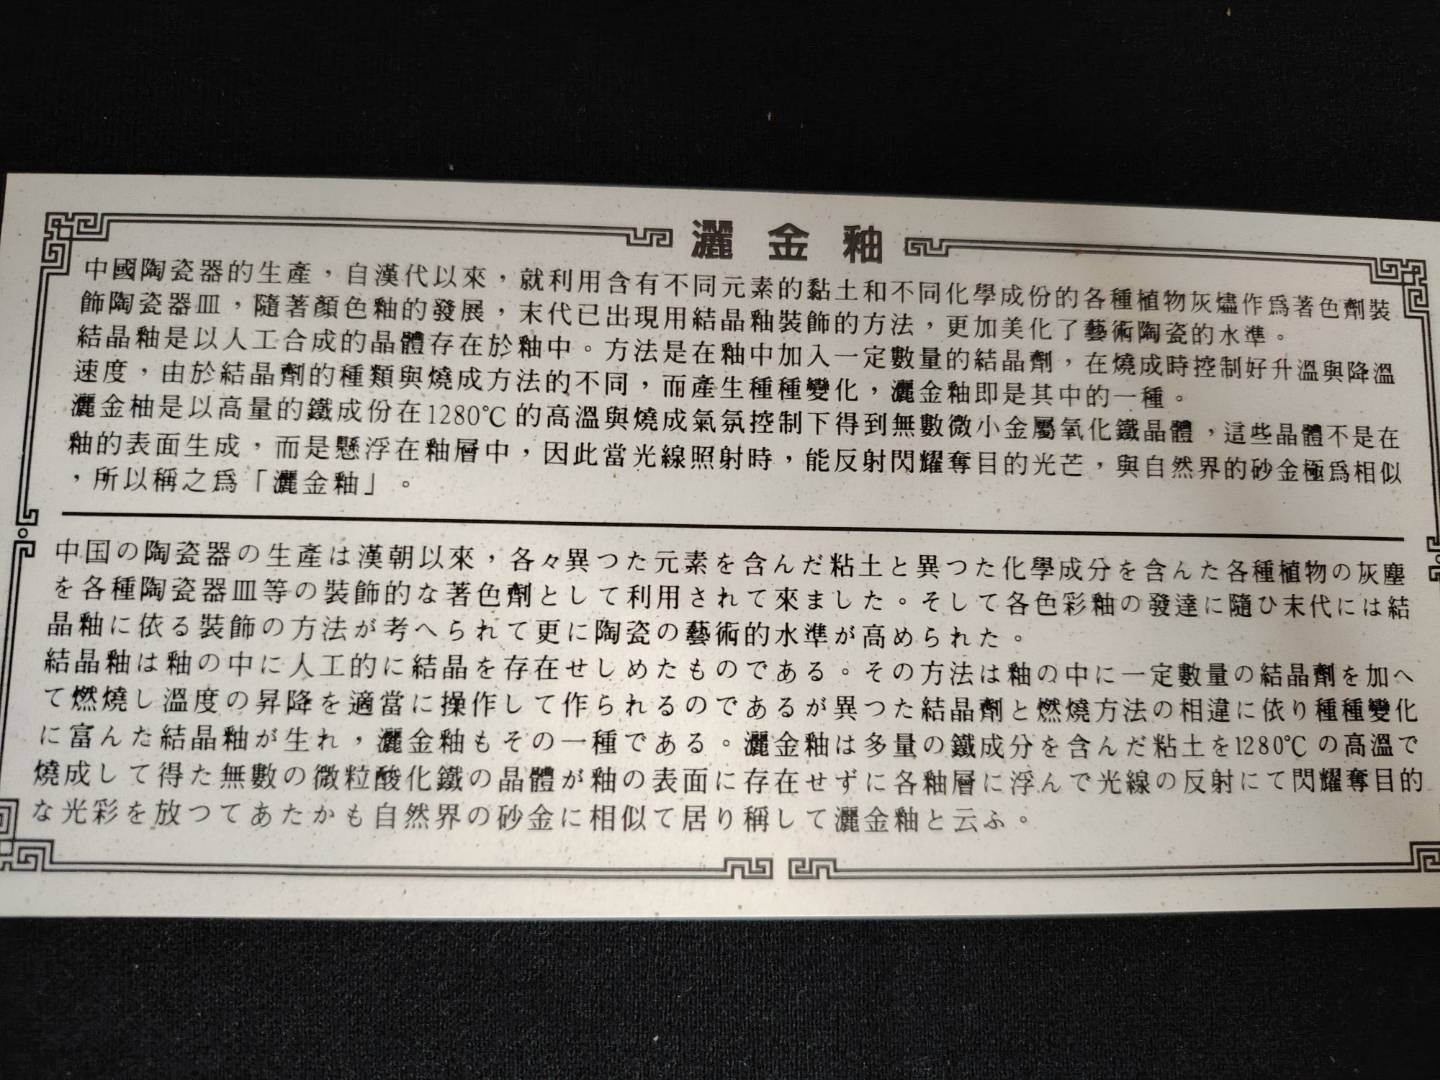 灑金釉
中國陶瓷器的生產，自漢代以來，就利用含有不同元素的黏土和不同化學成份的各種植物灰燼作爲著色劑裝
飾陶瓷器皿，隨著顏色釉的發展，末代已出現用結晶釉裝飾的方法，更加美化了藝術陶瓷的水準。
結晶釉是以人工合成的晶體存在於釉中。方法是在釉中加入一定數量的結晶劑，在燒成時控制好升溫與降溫
速度，由於結晶劑的種類與燒成方法的不同，而產生種種變化，灑金釉即是其中的一種。
灑金柚是以高量的鐵成份在1280℃的高溫與燒成氣氛控制下得到無數微小金屬氧化鐵晶體，這些晶體不是在
釉的表面生成，而是懸浮在釉層中，因此當光線照射時，能反射閃耀奪目的光芒，與自然界的砂金極爲相似
，所以稱之爲「灑金釉」。
中国の陶瓷器の生產は漢朝以來，各々異つた元素を含んだ粘土と異つた化學成分を含んた各種植物の灰塵
を各種陶瓷器皿等の裝飾的な著色劑として利用されて來ました。そして各色彩釉の發達に隨ひ末代には結
晶釉に依る裝飾の方法が考へられて更に陶瓷の藝術的水準が高められた。
結晶釉は釉の中に人工的に結晶を存在せしめたものである。その方法は釉の中に一定數量の結晶劑を加へ
て燃燒し溫度の昇降を適當に操作して作られるのであるが異つた結晶劑と燃燒方法の相違に依り種種變化
に富んた結晶釉が生れ，灑金釉もその一種である。灑金釉は多量の鐵成分を含んだ粘土を1280℃の高溫で
燒成して得た無數の微粒酸化鐵の晶體が釉の表面に存在せずに各釉層に浮んで光線の反射にて閃耀奪目的
な光彩を放つてあたかも自然界の砂金に相似て居り稱して灑金釉と云ふ。